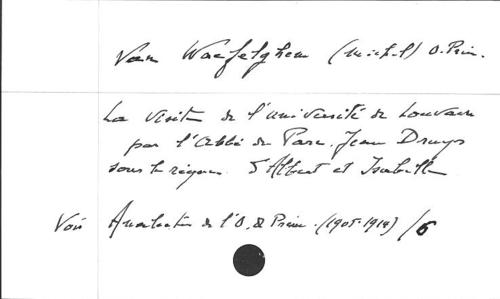 Van Waefelghem (Michel) O. Prém.
La visite de l'université de Louvain
par l'Abbé du Parc, Jean Druys
sous le règne d'Albert et Isabelle
Voir Analectes de l'O. de Prém. (1905-1914) / 6